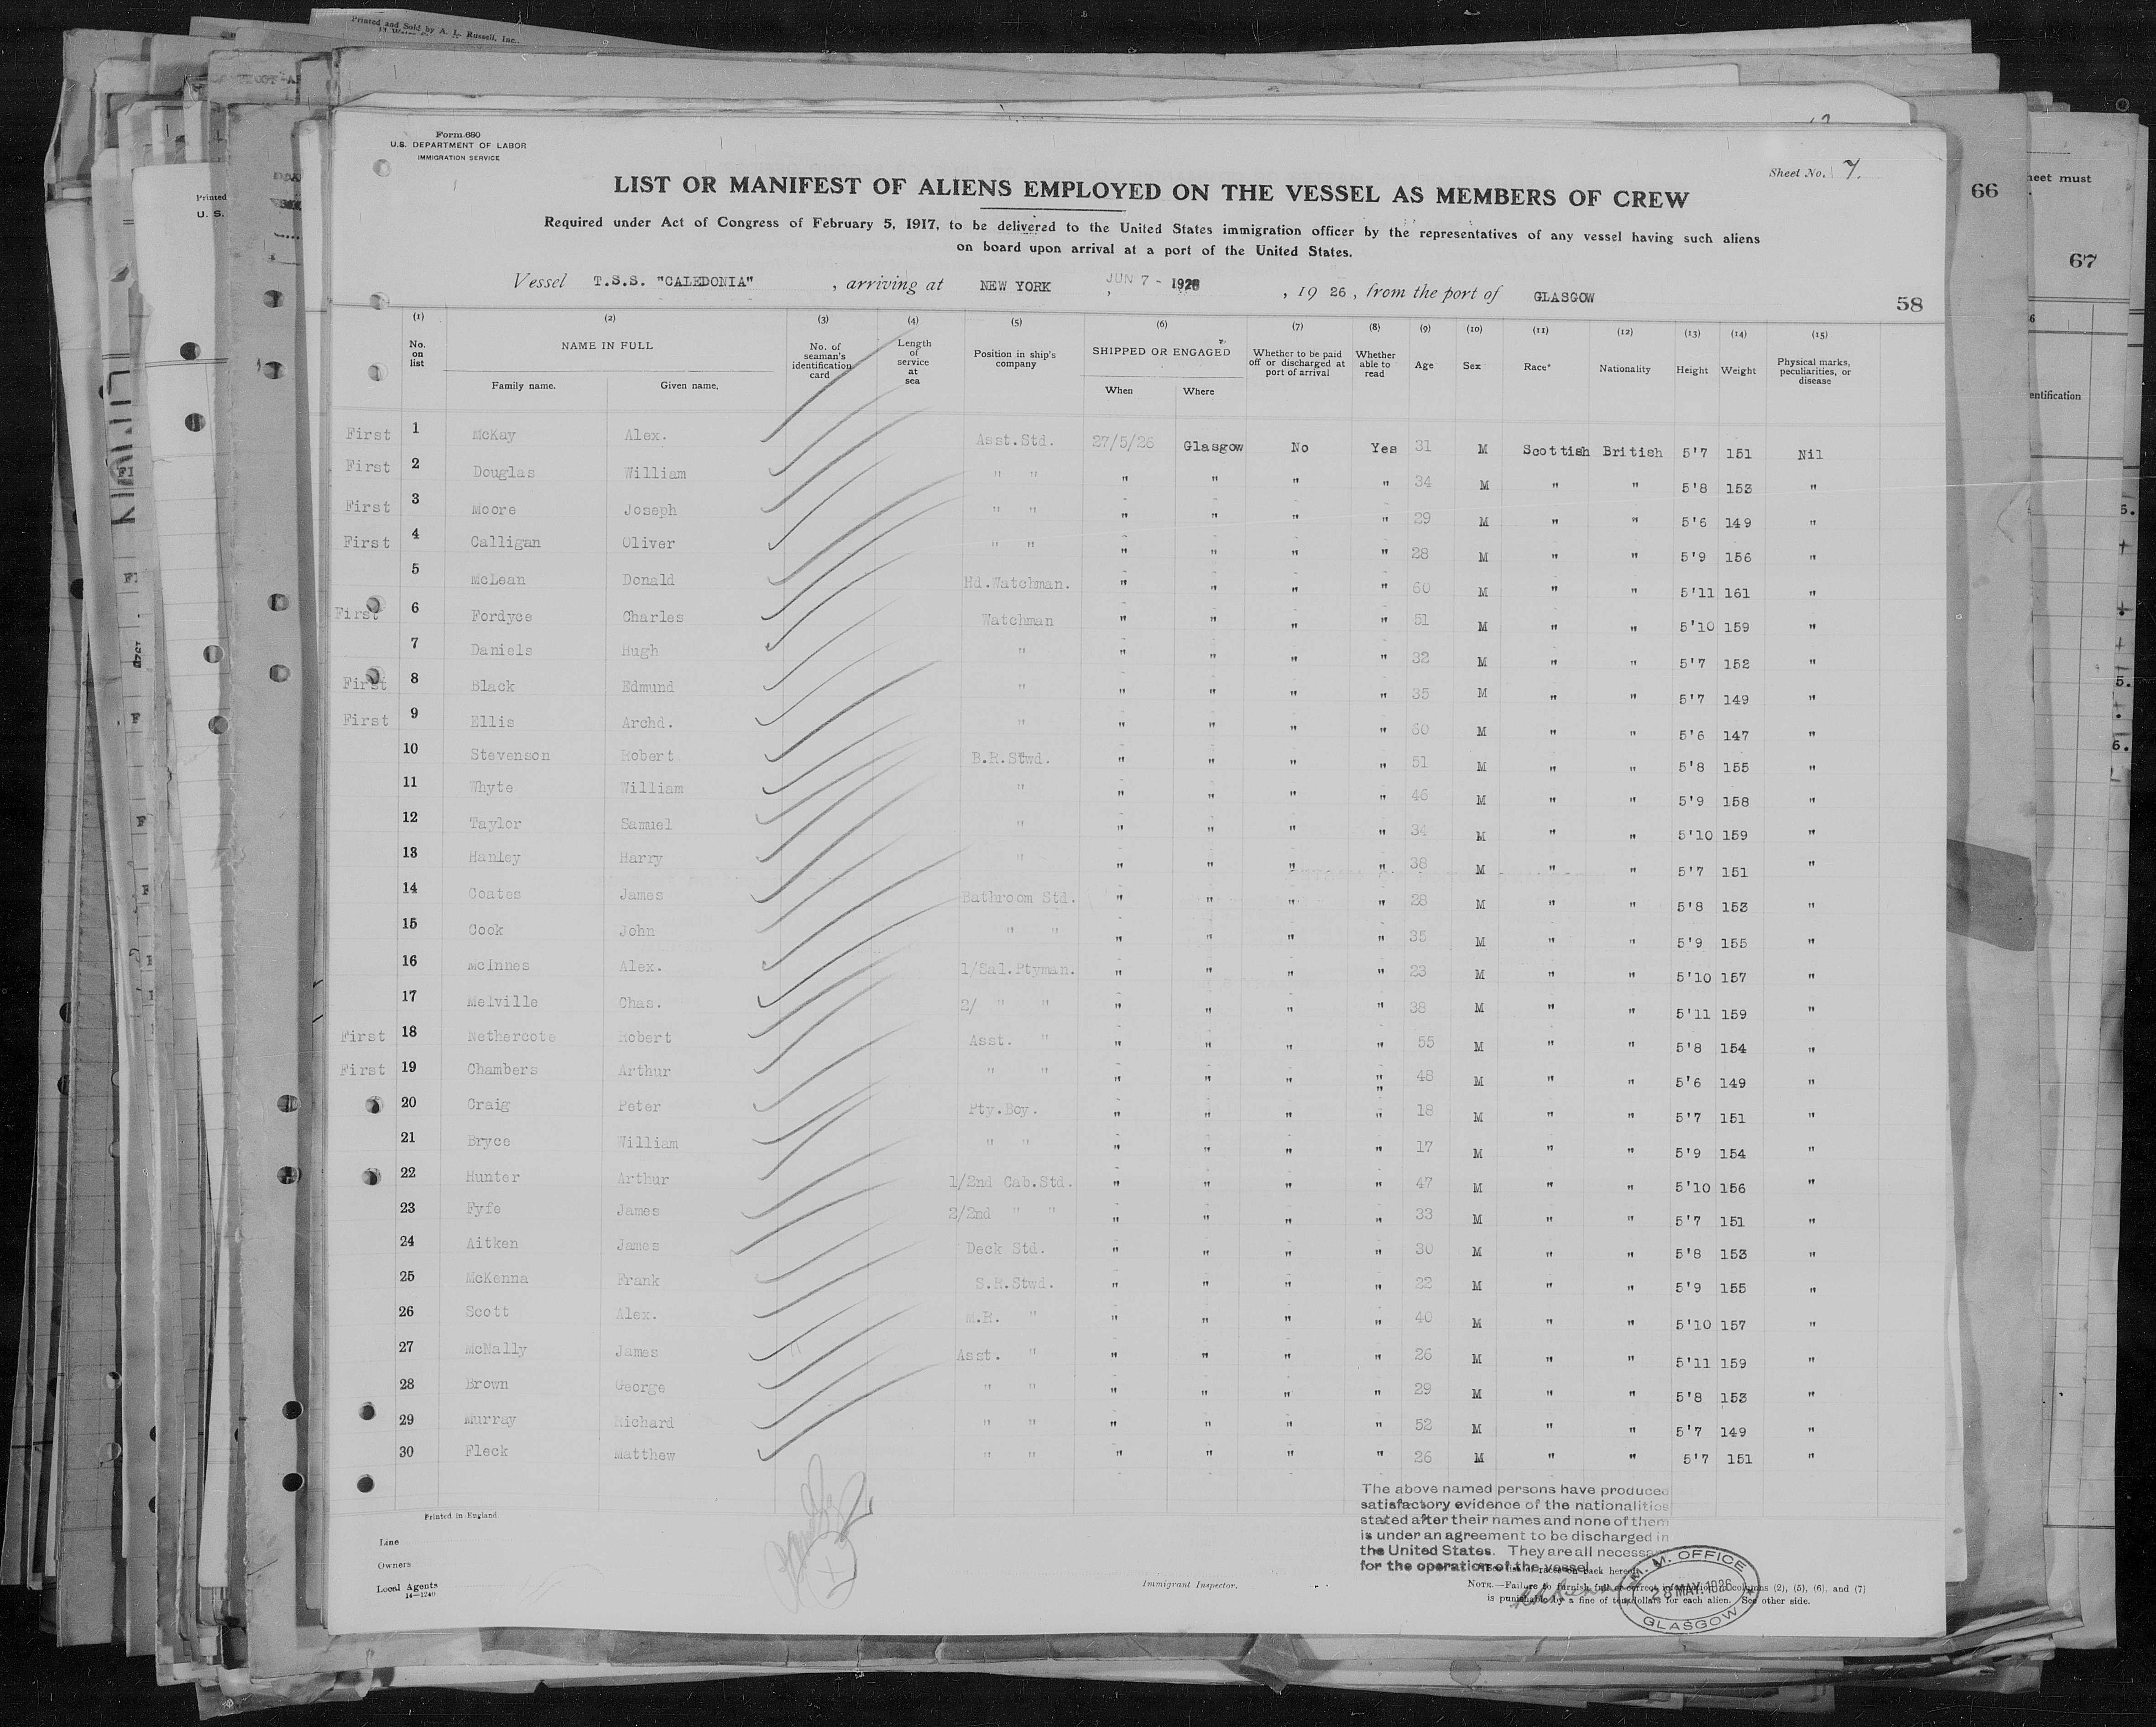 Printed and Sold by A. L. Russell, Inc.,
Form 680
U.S. DEPARTMENT OF LABOR
IMMIGRATION SERVICE
Sheet No. 7.
LIST OR MANIFEST OF ALIENS EMPLOYED ON THE VESSEL AS MEMBERS OF CREW
Required under Act of Congress of February 5, 1917, to be delivered to the United States immigration officer by the representatives of any vessel having such aliens
on board upon arrival at a port of the United States.
Vessel T.S.S. "CALEDONIA" , arriving at NEW YORK JUN 7 - 1926 , 19 26 , from the port of GLASGOW
58
(1) (2) (3) (4) (5) (6) (7) (8) (9) (10) (11) (12) (13) (14) (15)
No. on list NAME IN FULL Family name. Given name. No. of seaman's identification card Length of service at sea Position in ship's company SHIPPED OR ENGAGED When Where Whether to be paid off or discharged at port of arrival Whether able to read Age Sex Race* Nationality Height Weight Physical marks, peculiarities, or disease
First 1 McKay Alex. Asst.Std. 27/5/26 Glasgow No Yes 31 M Scottish British 5'7 151 Nil
First 2 Douglas William " " " " " " 34 M " " 5'8 153 "
First 3 Moore Joseph " " " " " " 29 M " " 5'6 149 "
First 4 Calligan Oliver " " " " " " 28 M " " 5'9 156 "
5 McLean Donald Hd.Watchman. " " " " 60 M " " 5'11 161 "
First 6 Fordyce Charles Watchman " " " " 51 M " " 5'10 159 "
7 Daniels Hugh " " " " " 32 M " " 5'7 152 "
First 8 Black Edmund " " " " " 35 M " " 5'7 149 "
First 9 Ellis Archd. " " " " " 60 M " " 5'6 147 "
10 Stevenson Robert B.R.Stwd. " " " " 51 M " " 5'8 155 "
11 Whyte William " " " " " 46 M " " 5'9 158 "
12 Taylor Samuel " " " " " 34 M " " 5'10 159 "
13 Hanley Harry " " " " " 38 M " " 5'7 151 "
14 Coates James Bathroom Std. " " " " 28 M " " 5'8 153 "
15 Cook John " " " " " " 35 M " " 5'9 155 "
16 McInnes Alex. 1/Sal.Ptyman. " " " " 23 M " " 5'10 157 "
17 Melville Chas. 2/ " " " " " " 38 M " " 5'11 159 "
First 18 Nethercote Robert Asst. " " " " " 55 M " " 5'8 154 "
First 19 Chambers Arthur " " " " " " 48 M " " 5'6 149 "
20 Craig Peter Pty.Boy. " " " " 18 M " " 5'7 151 "
21 Bryce William " " " " " " 17 M " " 5'9 154 "
22 Hunter Arthur 1/2nd Cab.Std. " " " " 47 M " " 5'10 156 "
23 Fyfe James 2/2nd " " " " " " 33 M " " 5'7 151 "
24 Aitken James Deck Std. " " " " 30 M " " 5'8 153 "
25 McKenna Frank S.R.Stwd. " " " " 22 M " " 5'9 155 "
26 Scott Alex. M.R. " " " " " 40 M " " 5'10 157 "
27 McNally James Asst. " " " " " 26 M " " 5'11 159 "
28 Brown George " " " " " " 29 M " " 5'8 153 "
29 Murray Richard " " " " " " 52 M " " 5'7 149 "
30 Fleck Matthew " " " " " " 26 M " " 5'7 151 "
The above named persons have produced
satisfactory evidence of the nationalities
stated after their names and none of them
is under an agreement to be discharged in
the United States. They are all necessary
for the operation of the vessel
Printed in England.
Line
Owners
Local Agents
14-1240
Immigrant Inspector.
NOTE.—Failure to furnish full or correct information in columns (2), (5), (6), and (7)
is punishable by a fine of ten dollars for each alien. See other side.
M. M. OFFICE
28 MAY. 1926
GLASGOW
66
67
heet must
entification
Printed
U. S.